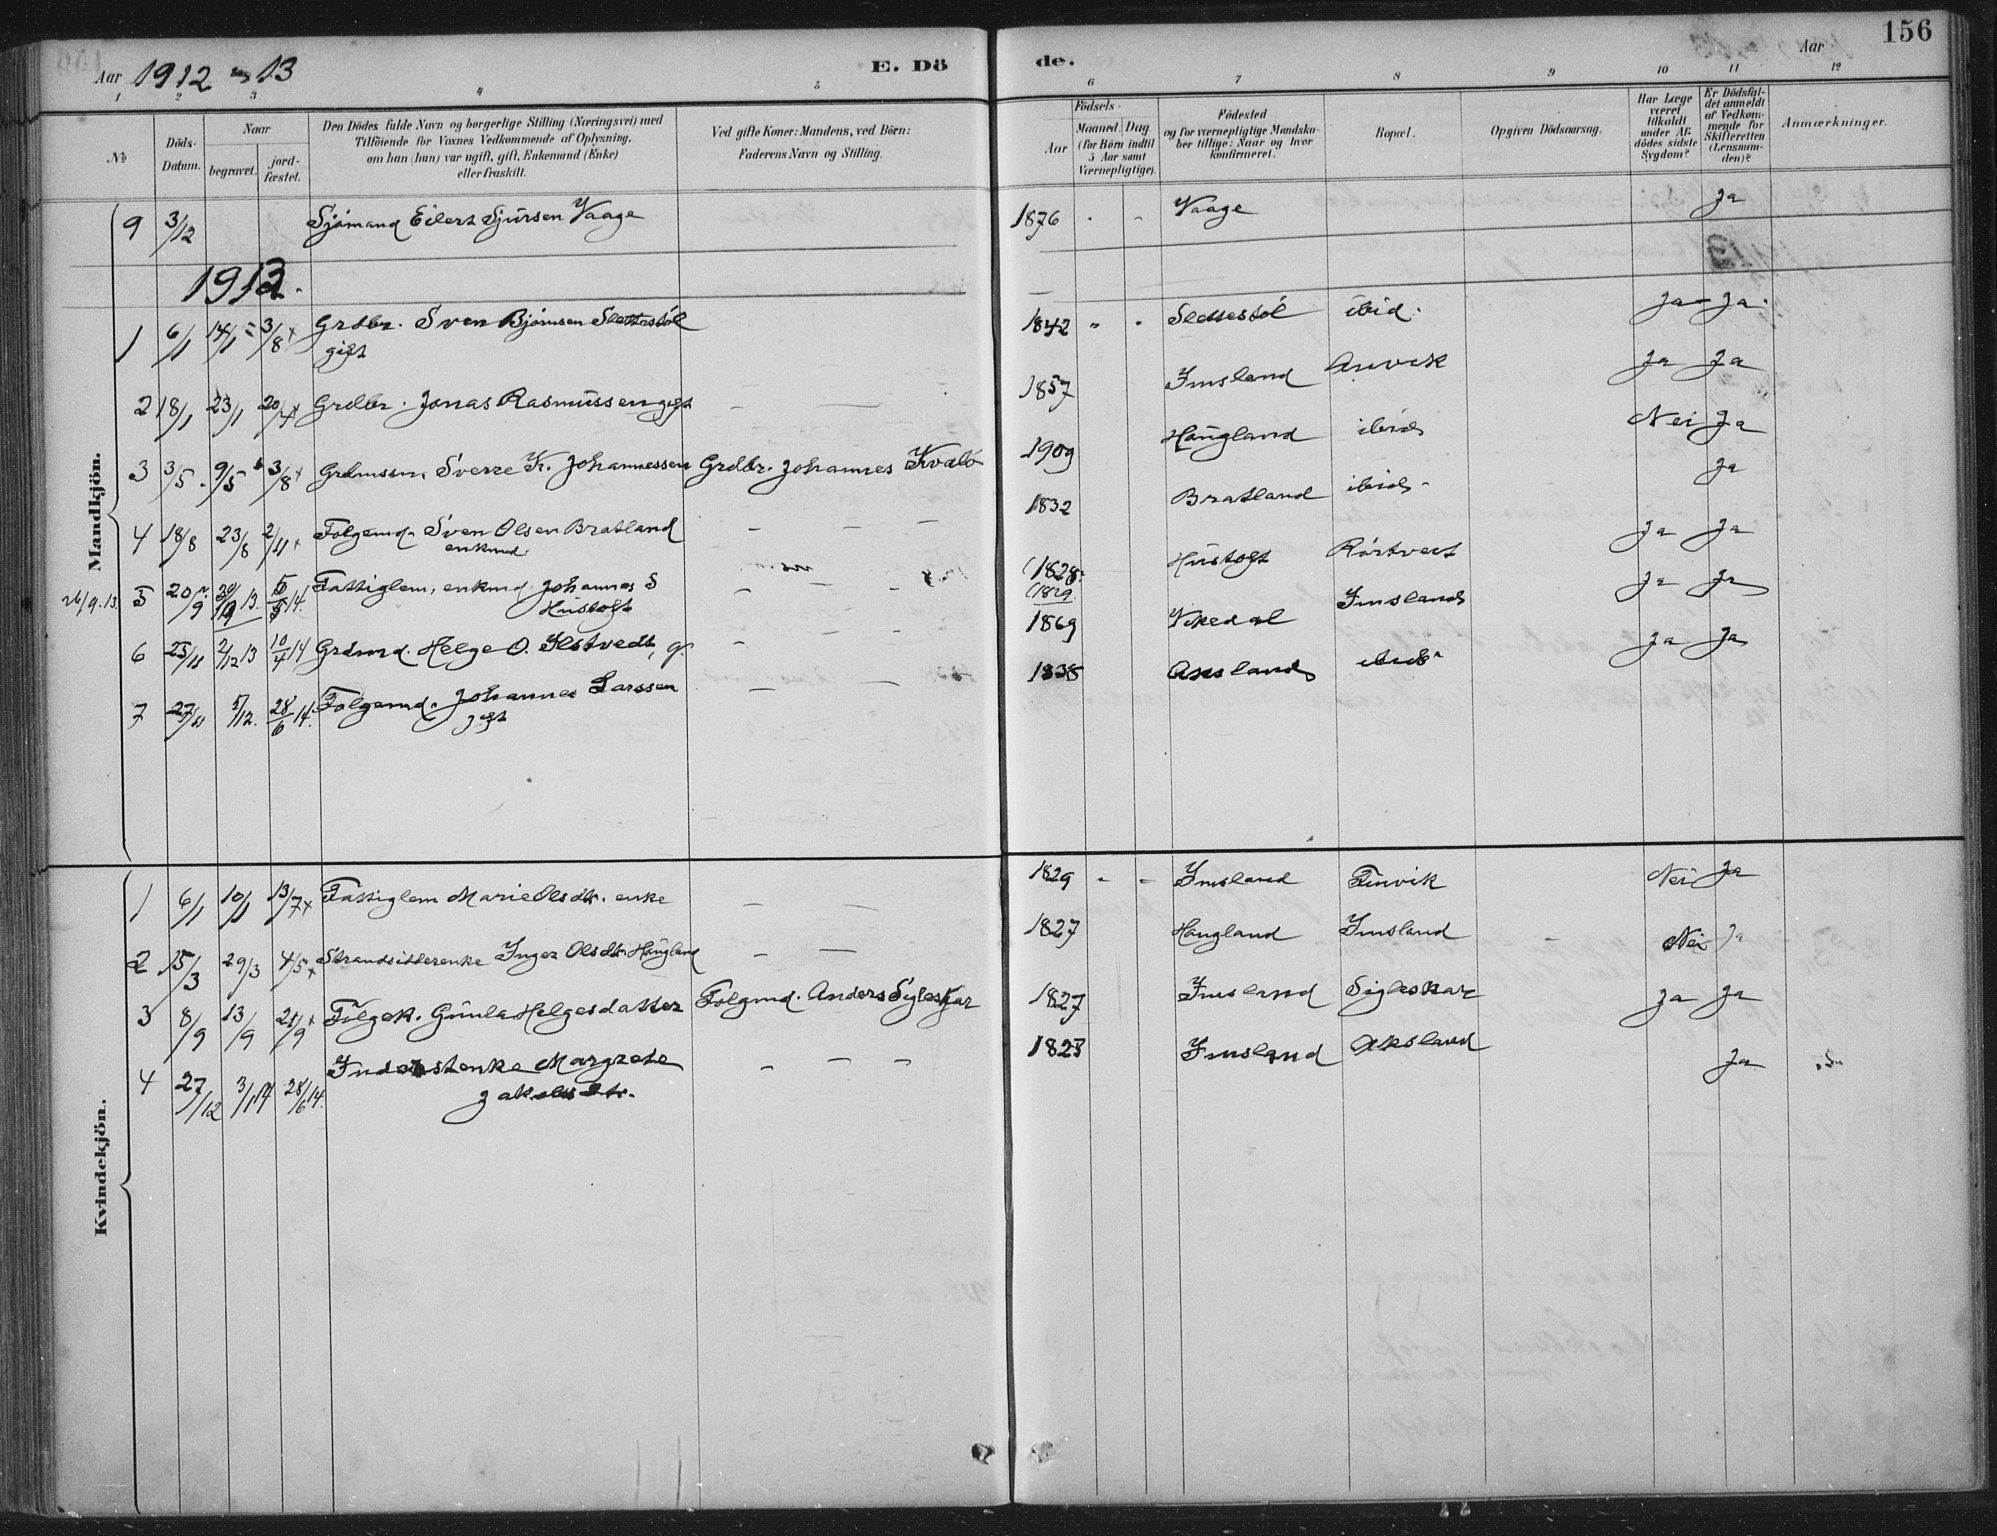 156
Aar 1912 og 13 E. Dö de. Aar
1 2 3 4 5 6 7 8 9 10 11 12
No
Döds-Datum.
Naar
begravet.
jord-fæstet.
Den Dödes fulde Navn og borgerlige Stilling (Næringsvei) med
Tilföiende for Voxnes Vedkommende af Oplysning,
om han (hun) var ugift, gift, Enkemand (Enke)
eller fraskilt.
Ved gifte Koner: Mandens, ved Börn:
Faderens Navn og Stilling.
Födsels-
Aar
Maaned. Dag
(for Börn indtil
5 Aar samt
Værnepligtige).
Födested
og for værnepligtige Mandska-
ber tillige: Naar og hvor
konfirmeret.
Bopæl.
Opgiven Dödsaarsag.
Har Læge
været
tilkaldt
under Af-
dödes sidste
Sygdom?
Er Dödsfal-
det anmeldt
af Vedkom-
mende for
Skifteretten
(Lensman-
den)?
Anmærkninger.
Mandkjön.
9 3/12 Sjömand Eilert Sjursen Vaage 1876 - - Vaage Ja
1913.
1 6/1 14/1 3/8 x Grdbr. Sven Björnsen Slettestöl 1842 " - Slettestöl ibid. Ja - Ja.
gift
2 18/1 23/1 20/4 x Grdbr. Jonas Rasmussen gift - - 1857 Imsland Anvik Ja Ja
3 3/5 9/5 3/8 x Grdmssn. Sverre Kr. Johannessen Grdbr. Johannes Kvalö 1909 Haugland ibid Nei Ja
4 18/8 23/8 2/11 x Folgemd. Sven Olsen Bratland - - - 1832 Bratland ibid - Ja
enkmd.
26/9.13. 5 20/9 13. 5/5 14. Fattiglem, enkmd Johannes S - - - (1828. Hustoft Rörtveit Ja Ja
Hustoft (1829.
6 25/11 2/12 13 10/4 14 Grdmd. Helge O. Ilstvedt, g. - - - 1869 Vikedal Imsland Ja Ja
7 27/11 5/12. 28/6 14. Folgemd. Johannes Larssen - - 1838 Axsland ibid. Ja Ja
gift
Kvindekjön.
1 6/1 10/1 13/7 x Fattiglem Marie Olsdtr. enke - - 1829 - - Imsland Finvik Nei Ja
2 15/3 29/3 4/5 x Strandsidderenke Inger Olsdtr Haugland - - 1827 Haugland Imsland - Nei Ja
3 8/9 13/9 21/9 x Folgek. Gunla Helgesdatter Folgmd. Anders Sigleskar 1827 Imsland Sigleskar Ja Ja
4 27/12 3/1 14 28/6 14. Inderstenke Margrete - - - 1823 Imsland Aksland Ja
Jakobsdtr.